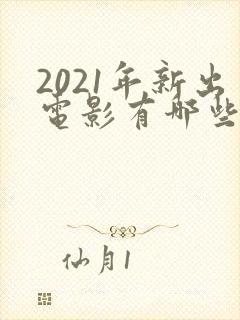 2021年新出
电影有哪些
仙月1